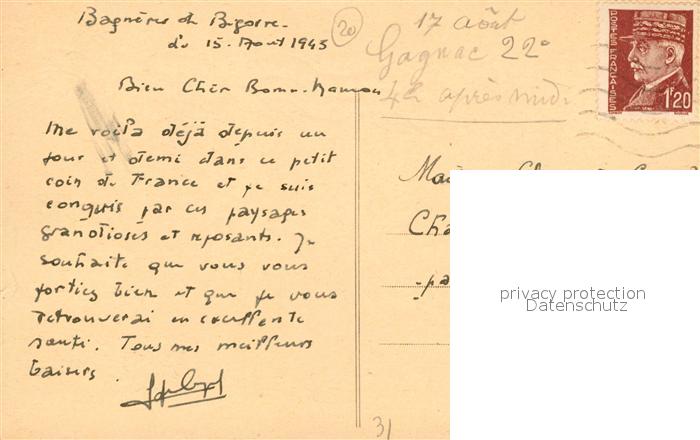 Bagnères de Bigorre
du 15. Aout 1943
20
17 Août
Gagnac 22°
4h après midi
POSTES FRANÇAISES
1F20
Bien Chère Bonne-Maman
Me voila déjà depuis un
jour et demi dans ce petit
coin de France et je suis
conquis par ces paysages
grandioses et reposants. Je
souhaite que vous vous
portiez bien et que je vous
retrouverai en excellente
santé. Tous mes meilleurs
baisers.
Cha
pa
privacy protection
Datenschutz
31